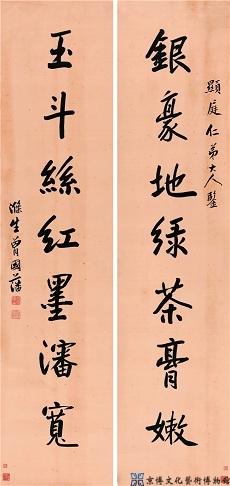 顯庭仁弟大人鑒
銀豪地綠茶膏嫩
玉斗絲紅墨瀋寬
滌生曾國藩
京博文化藝術博物館